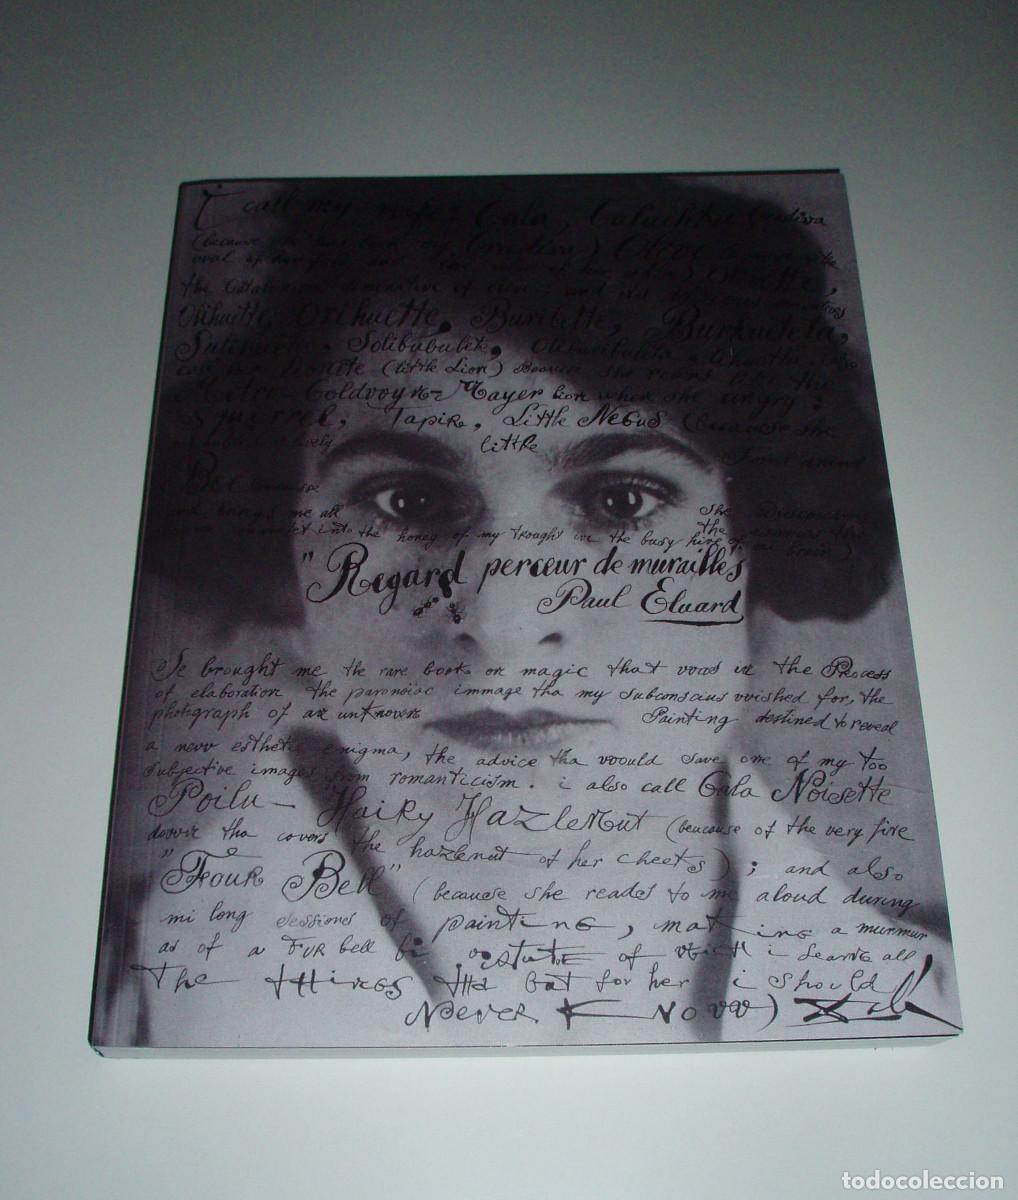 I call my wife: Gala, Galuchka, Gradiva
(because she has been my Gradiva) Olive (because of the
oval of her face and the color of her skin) Olivette,
the Catalonian diminutive of olive; and its delirious derivatives
Orihuette, Orihuette, Buribette, Burbueteta,
Sulihueta, Solibubulete, Oliburibuleta
call her Lionette (Little Lion) Because she roars like the
Metro-Goldvvyn-Mayer lion when she angry;
Squirrel, Tapire, Little Negus (because she
lively little
Bee because
and brings me all
into the honey of my trought in the busy hive of mi brain)
"Regard perceur de murailles"
Paul Eluard
Se brought me the rare book on magic that vvas in the Process
of elaboration the paronoiac immage tha my subconscius vvished for, the
photograph of an unknovvn Painting destined to reveal
a nevv esthetic enigma, the advice tha vvould save one of my too
subjective images from romanticism. i also call Gala Noisette
Poilu - Hairy Hazlenut (beucause of the very fine
dovvn tha covers the hazlenut of her cheeks) ; and also
"Four Bell" (because she reads to me aloud during
mi long sessiones of painting, making a murmur
as of a Fur bell bi vistute of vvich i learne all
The things tha but for her i should
Never Knovv)
todocoleccion